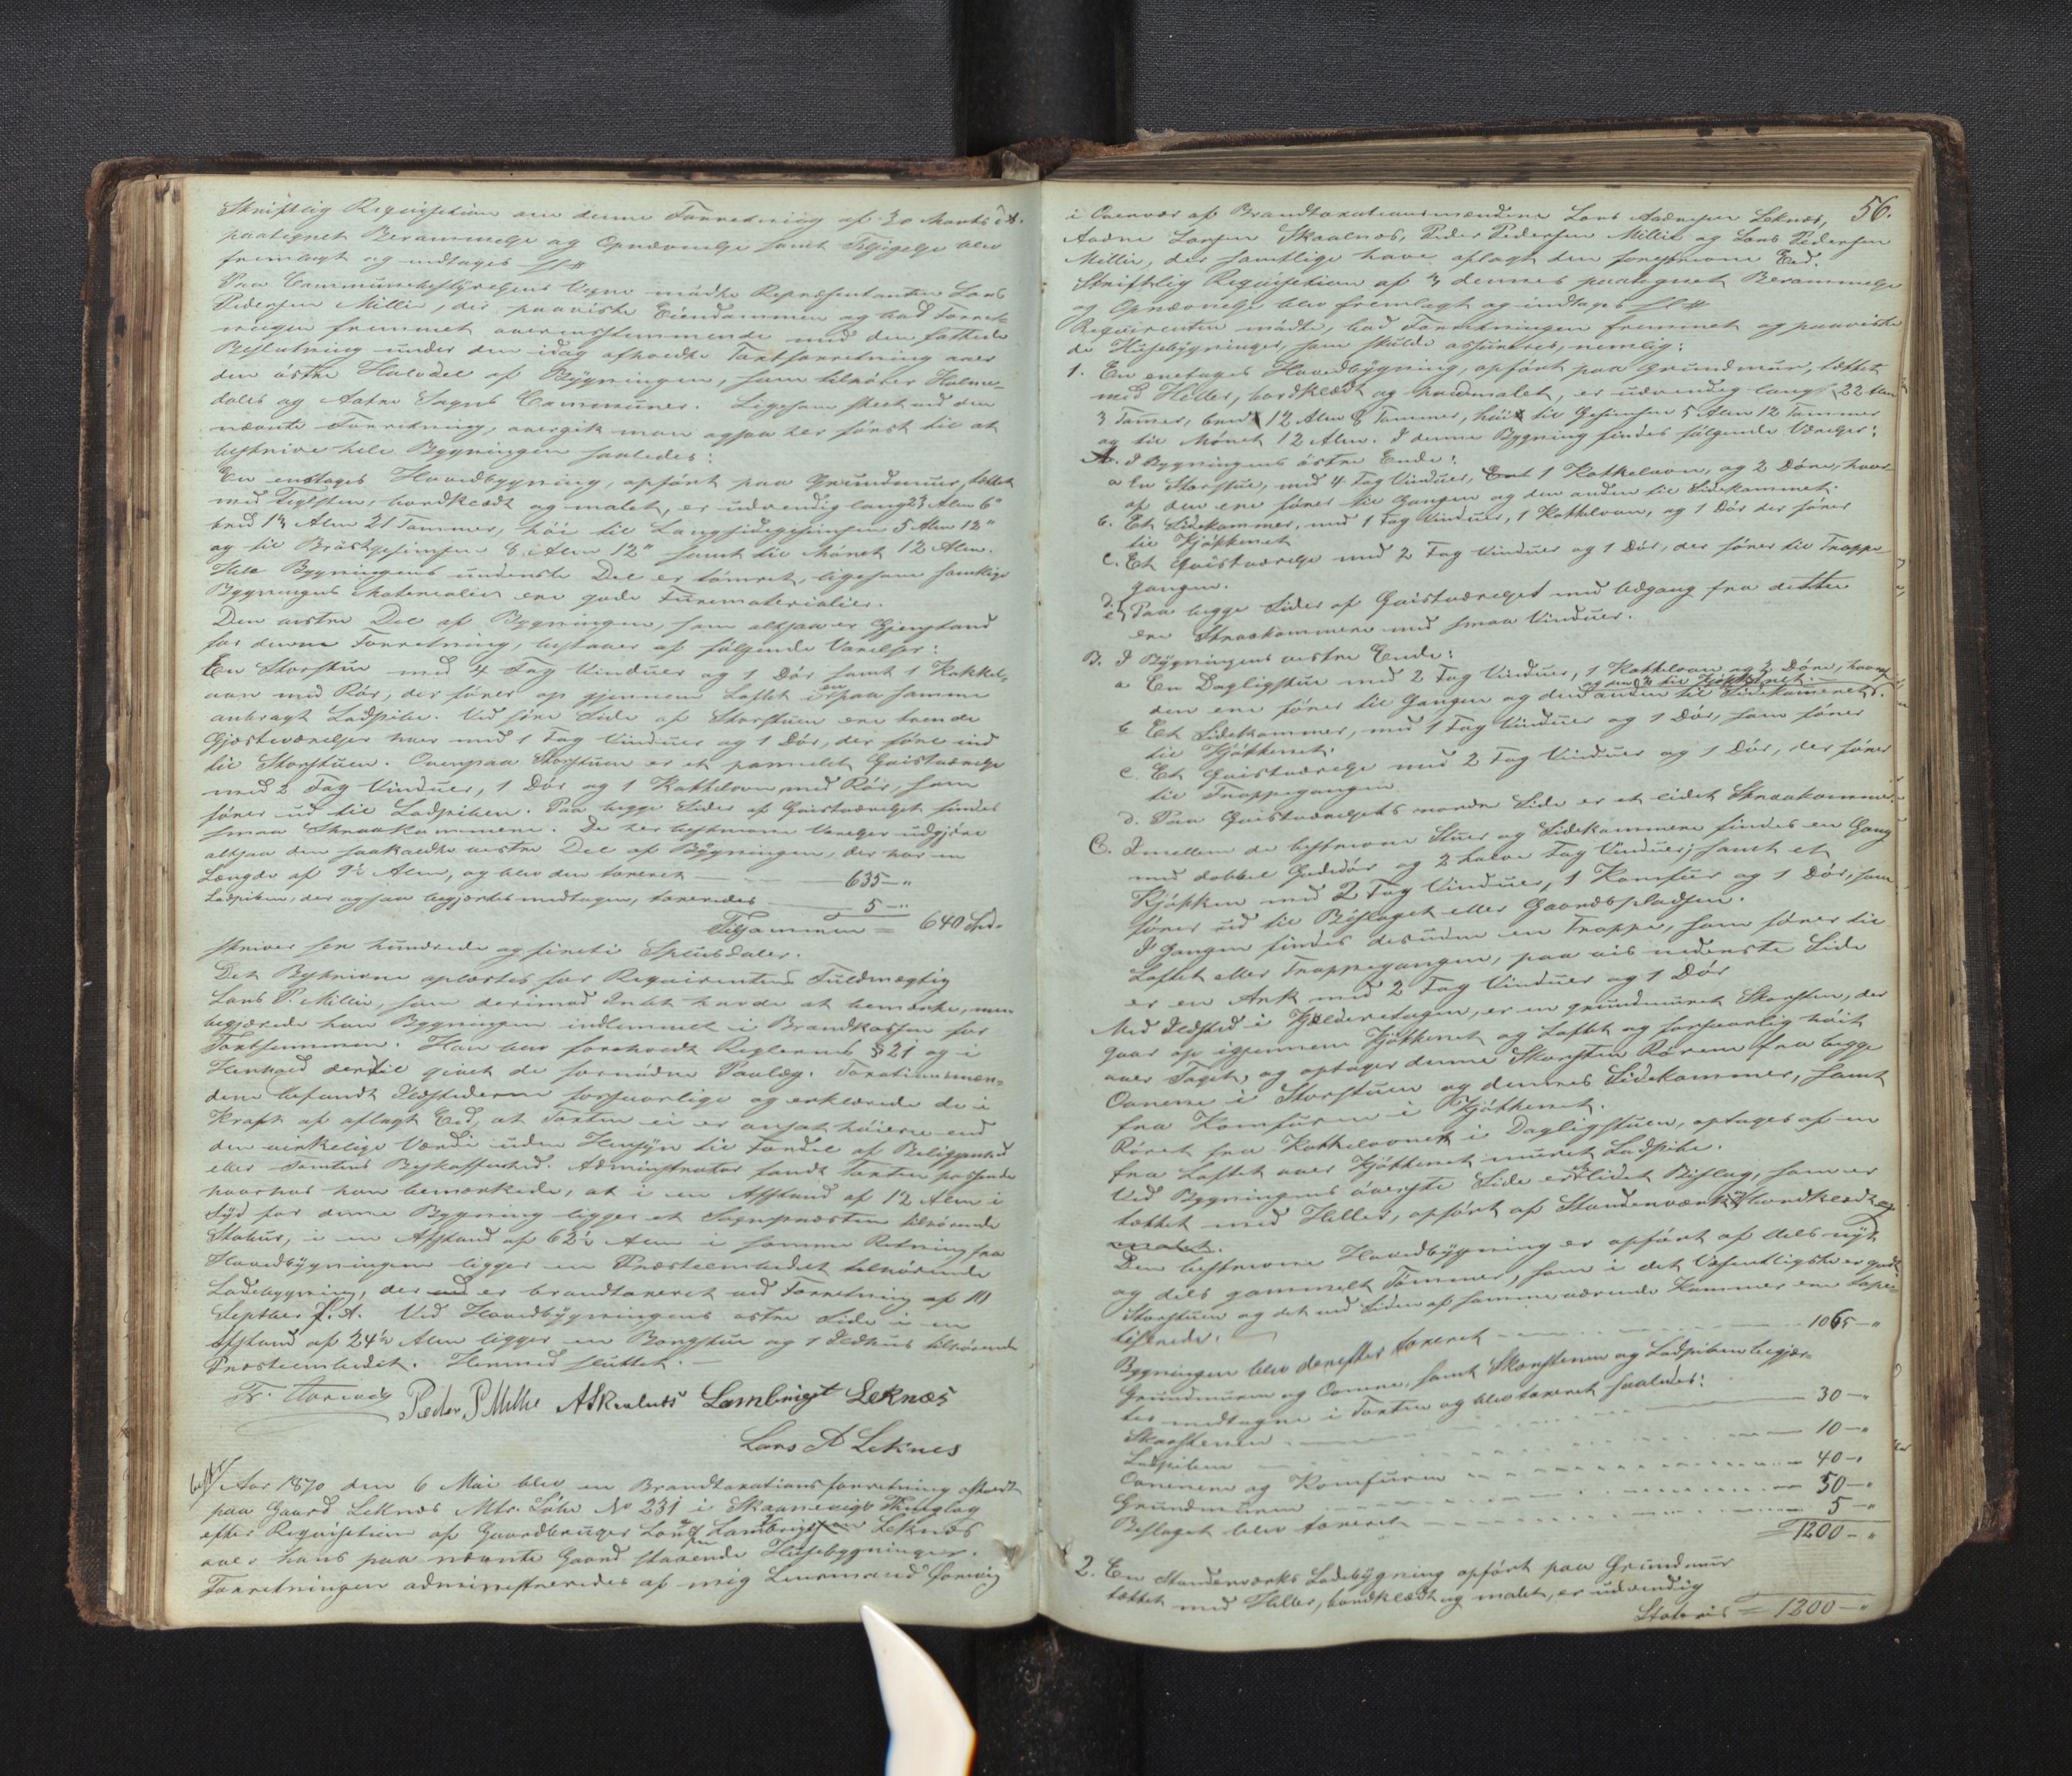 Skriftlig Requisition om denne Forretning af 30 Marts d. A.
paategnet Berammelse og Opnævnelse samt Tilsigelse blev
fremlagt og indtages
Paa Communebestyrelsens Vegne mødte Repræsentanten Lars
Pedersen Millie, der paaviste Eiendommen og bad Forret-
ningen fremmet overensstemmende med den fattede
Beslutning under den idag afholdte Taxtforretning over
den østre Halvdel af Bygningen, som tilhører Holme-
dals og Aakre Sogns Communer. Ligesom skeet ved den
nævnte Forretning, overgik man ogsaa her først til at
beskrive hele Bygningen saaledes:
En enetages Hovedbygning, opført paa Grundmuur, tækket
med Teglsten, bordklædt og malet, er udvendig lang 23 Alen 6"
bred 13 Alen 21 Tommer, høi til Langsidegesimsen 5 Alen 12"
og til Bröstgesimsen 8 Alen 12" samt til Mønet 12 Alen.
Hele Bygningens underste Del er tømret, ligesom samtlige
Bygningens Materialier ere gode Furematerialier.
Den vestre Del af Bygningen, som altsaa er Gjenstand
for denne Forretning, bestaaer af følgende Værelser:
En Storstue med 4 Fag Vinduer og 1 Dør samt 1 Kakkel-
ovn med Rør, der fører op gjennem Loftet i en paa samme
anbragt Ladpibe. Ved søre Side af Storstuen ere trende
Gjesteværelser hver med 1 Fag Vinduer og 1 Dør, der føre ind
til Storstuen. Ovenpaa Storstuen er et panelet Qvistværelse
med 2 Fag Vinduer, 1 Dør og 1 Kakkelovn med Rør, som
fører ud til Ladpiben. Paa begge Sider af Qvistværelset findes
smaa Skraakammere. De her beskrevne Værelser udgjøre
altsaa den saakaldte vestre Del af Bygningen, der har en
Længde af 9½ Alen, og blev den taxeret 635 - "
Ladpiben, der ogsaa begjærtes medtagen, taxeredes 5 - "
Tilsammen = 640 Spd.
skriver sex hundrede og fireti Speciedaler.
Det Beskrevne oplæstes for Requirentens Fuldmægtig
Lars P. Millie, som derimod Intet havde at bemærke, men
begjærede han Bygningen indlemmet i Brandkassen for
Taxtsummen. Han blev foreholdt Reglernes § 21 og i
Henhold dertil givet de fornødne Paalæg. Taxationsmæn-
dene befandt Ildstederne forsvarlige og erklærede de i
Kraft af aflagt Eed, at Taxten ei er ansat høiere end
den virkelige Værdi uden Hensyn til Fordel af Beliggenhed
eller Tomtens Beskaffenhed. Administrator fandt Taxten passende
hvorhos han bemærkede, at i en Afstand af 12 Alen i
Syd for denne Bygning ligger et Sognepræsten tilhørende
Stabur, i en Afstand af 62½ Alen i samme Retning fra
Hovedbygningen ligger en Præsteembedet tilhørende
Ladebygning, der er brandtaxeret ved Forretning af 10
Septber f. A. Ved Hovedbygningens østre Side i en
Afstand af 24½ Alen ligger en Borgstue og 1 Ildhus tilhørende
Præsteembedet. Hermed sluttet.
Peder P Millie A Skaalnes Lambrigt Leknæs
Lars A Leknes
Aar 1870 den 6 Mai blev en Brandtaxationsforretning afholdt
paa Gaard Leknæs Mtr. Løbe No 231 i Skaanevigs Thinglag
efter Requisition af Gaardbruger Lars Lambrigtsen Leknæs
over hans paa nævnte Gaard staaende Husebygninger.
Forretningen administreredes af mig Lensmand
56.
i Overvær af Brandtaxationsmændene Lars Aadnesen Leknæs,
Aadne Larsen Skaalnes, Peder Pedersen Millie og Lars Pedersen
Millie, der samtlige have aflagt den foreskrevne Eed.
Skriftlig Requisition af 3 dennes paategnet Berammelse
og Opnævnelse blev fremlagt og indtages
Requirenten mødte, bad Forretningen fremmet og paaviste
de Husebygninger, som skulde assureres, nemlig:
1. En enetages Hovedbygning, opført paa Grundmur, tækket
med Heller, bordklædt og hvidmalet, er udvendig lang 22 Alen
3 Tommer, bred 12 Alen 8 Tommer, høi til Gesimsen 5 Alen 12 Tommer
og til Mønet 12 Alen. I denne Bygning findes følgende Værelser:
A. I Bygningens østre Ende:
a En Storstue, med 4 Fag Vinduer, 1 Kakkelovn, og 2 Døre, hvor-
af den ene fører til Gangen og den anden til Sidekammeret.
b. Et Sidekammer, med 1 Fag Vinduer, 1 Kakkelovn, og 1 Dør der fører
til Kjøkkenet
c. Et Qvistværelse med 2 Fag Vinduer og 1 Dør, der fører til Trappe-
gangen.
d. e. Paa begge Sider af Qvistværelset med Udgang fra dette
ere Skraakammere med smaa Vinduer.
B. I Bygningens vestre Ende:
a En Dagligstue med 2 Fag Vinduer, 1 Kakkelovn og 3 Døre, hvoraf
den ene fører til Gangen og den anden til Sidekammeret og den 3 til Kjøkkenet.
b Et Sidekammer, med 1 Fag Vinduer og 1 Dør, som fører
til Kjøkkenet.
c. Et Qvistværelse med 2 Fag Vinduer og 1 Dør, der fører
til Trappegangen
d. Paa Qvistværelsets nordre Side er et lidet Skraakammer.
C. Imellem de beskrevne Stuer og Sidekammere findes en Gang
med dobbel Gadedør og 2 halve Fag Vinduer; samt et
Kjøkken med 2 Fag Vinduer, 1 Komfur og 1 Dør, som
fører ud til Bislaget eller Gaardspladsen.
I Gangen findes desuden en Trappe, som fører til
Loftet eller Trappegangen, paa vis nederste Side
er en Ark med 2 Fag Vinduer og 1 Dør
Med Ildsted i Kjelderetagen, er en grundmuret Skorsten, der
gaar op igjennem Kjøkkenet og Loftet og forsvarlig høit
over Taget, og optager denne Skorsten Rørene fra begge
Ovnene i Storstuen og dennes Sidekammer, samt
fra Komfuren i Kjøkkenet.
Røret fra Kakkelovnen i Dagligstuen, optages af en
fra Loftet over Kjøkkenet muret Ladpibe.
Ved Bygningens øverste Side er et lidet Bislag, som er
tækket med Heller, opført af Standerværk, bordklædt og
malet.
Den beskrevne Hovedbygning er opført af dels nyt
og dels gammelt Tømmer, som i det Væsentligste er godt.
Storstuen og det ved Siden af samme værende Kammer ere tape-
tserede.
Bygningen blev derefter taxeret 1065 - "
Grundmuren og Ovnene, samt Skorstenen og Ladpiben begjær-
tes medtagne i Taxten og blev taxeret saaledes:
Skorstenen 30 - "
Ladpiben 10 - "
Ovnenene og Komfuren 40 - "
Grundmuren 50 - "
Bislaget blev taxeret 5 - "
= 1200 - "
2. En Standerværks Ladebygning opført paa Grundmuur
tækket med Heller, bordklædt og malet, er udvendig
Latus = 1200 - "